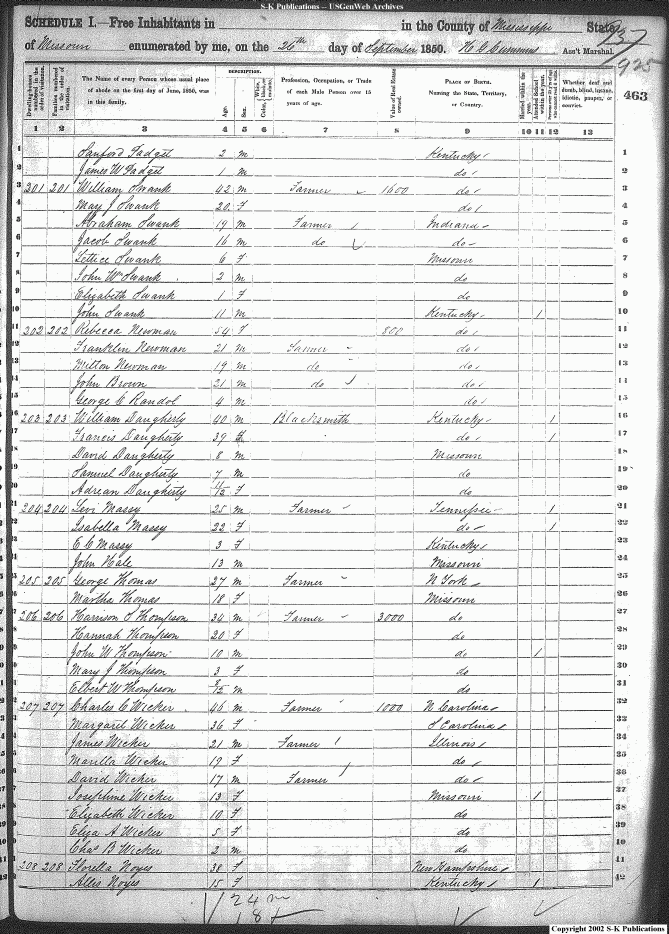 S-K Publications -- USGenWeb Archives
SCHEDULE I.—Free Inhabitants in in the County of Mississippi State
of Missouri enumerated by me, on the 26th day of September 1850. Ass't Marshal.
937
925
463
DESCRIPTION.
Dwelling-houses numbered in the order of visitation.
Families numbered in the order of visitation.
The Name of every Person whose usual place of abode on the first day of June, 1850, was in this family.
Age.
Sex.
Color, White, black, or mulatto.
Profession, Occupation, or Trade of each Male Person over 15 years of age.
Value of Real Estate owned.
PLACE OF BIRTH. Naming the State, Territory, or Country.
Married within the year.
Attended School within the year.
Whether deaf and dumb, blind, insane, idiotic, pauper, or convict.
1 2 3 4 5 6 7 8 9 10 11 12 13
1 Sanford Padget 2 m Kentucky 1
2 James W Padget 1 m do 2
3 201 201 William Swank 42 m Farmer 1600 do 3
4 May J Swank 20 F do 4
5 Abraham Swank 19 m Farmer Indiana 5
6 Jacob Swank 16 m do do 6
7 Lettice Swank 6 F Missouri 7
8 John W Swank 2 m do 8
9 Elizabeth Swank 1 F do 9
10 John Swank 11 m Kentucky 1 10
11 202 202 Rebecca Newman 54 F 800 do 11
12 Franklin Newman 21 m Farmer do 12
13 Milton Newman 19 m do do 13
14 John Brown 21 m do do 14
15 George C Randol 4 m do 15
16 203 203 William Daugherty 40 m Blacksmith Kentucky 1 16
17 Francis Daugherty 39 F do 1 17
18 David Daugherty 8 m Missouri 18
19 Samuel Daugherty 7 m do 19
20 Adrean Daugherty 11/12 F do 20
21 204 204 Levi Massy 25 m Farmer Tennessee 1 21
22 Isabella Massy 22 F do 1 22
23 E C Massy 3 F Kentucky 23
24 John Hale 13 m Missouri 24
25 205 205 George Thomas 27 m Farmer N York 25
26 Martha Thomas 18 F Missouri 26
27 206 206 Harrison S Thompson 34 m Farmer 3000 do 27
28 Hannah Thompson 20 F do 28
29 John W Thompson 10 m do 1 29
30 Mary J Thompson 3 F do 30
31 Elbert W Thompson 8/12 m do 31
32 207 207 Charles C Wicker 46 m Farmer 1000 N Carolina 32
33 Margaret Wicker 36 F S Carolina 33
34 James Wicker 21 m Farmer Illinois 34
35 Marilla Wicker 19 F do 35
36 David Wicker 17 m Farmer do 36
37 Josephine Wicker 13 F Missouri 1 37
38 Elizabeth Wicker 10 F do 38
39 Eliza A Wicker 5 F do 39
40 Chas B Wicker 2 m do 40
41 208 208 Florella Noyes 38 F New Hampshire 41
42 Allis Noyes 15 F Kentucky 1 42
24 m
18 F
Copyright 2002 S-K Publications